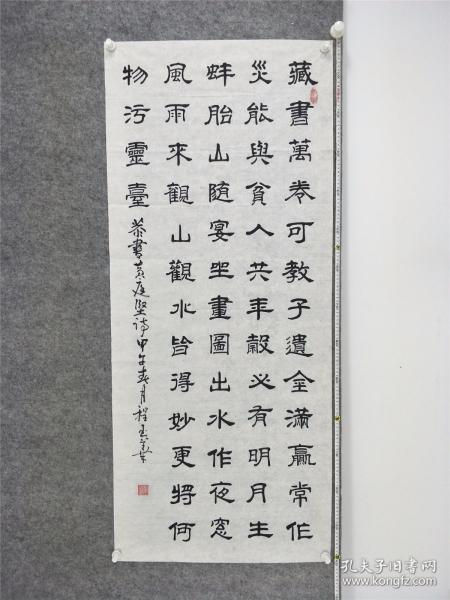 藏書萬卷可教子遺金滿贏常作
災能與貧人共年穀必有明月生
蚌胎山随宴坐畫圖出水作夜窓
風雨來觀山觀水皆得妙更將何
物污靈臺 恭書黄庭堅詩甲午春月程
孔夫子旧书网
www.kongfz.com